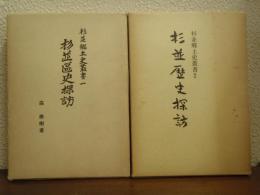 杉並郷土史叢書一
杉並區史探訪
森 泰樹著
杉並郷土史叢書2
杉並歴史探訪